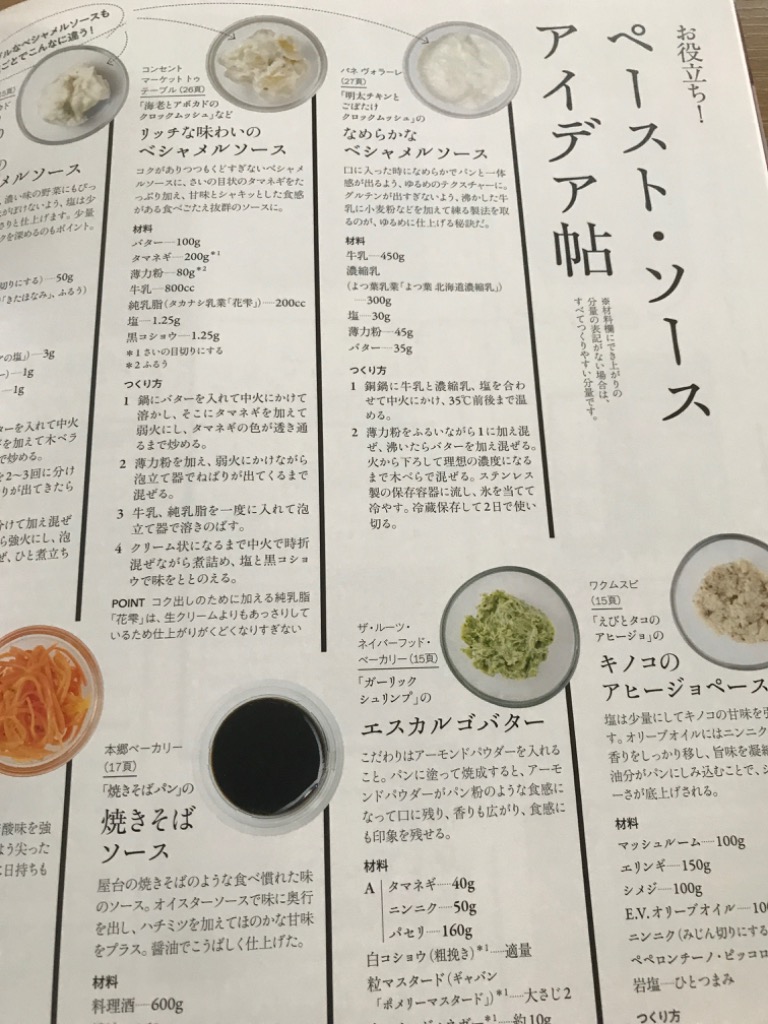 お役立ち！
ペースト・ソース
アイデア帖
※材料欄にでき上がりの
分量の表記がない場合は、
すべてつくりやすい分量です。
パネ ヴォラーレ
(27頁)
「明太チキンと
ごぼだけ
クロックムッシュ」の
なめらかな
ベシャメルソース
口に入った時になめらかでパンと一体
感が出るよう、ゆるめのテクスチャーに。
グルテンが出すぎないよう、沸かした牛
乳に小麦粉などを加えて練る製法を取
るのが、ゆるめに仕上げる秘訣だ。
材料
牛乳―450g
濃縮乳
(よつ葉乳業「よつ葉 北海道濃縮乳」)
―300g
塩―30g
薄力粉―45g
バター―35g
つくり方
1 銅鍋に牛乳と濃縮乳、塩を合わ
せて中火にかけ、35℃前後まで温
める。
2 薄力粉をふるいながら1に加え混
ぜ、沸いたらバターを加え混ぜる。
火から下ろして理想の濃度になる
まで木べらで混ぜる。ステンレス
製の保存容器に流し、氷を当てて
冷やす。冷蔵保存して2日で使い
切る。
コンセント
マーケット トゥ
テーブル (26頁)
「海老とアボカドの
クロックムッシュ」など
リッチな味わいの
ベシャメルソース
コクがありつつもくどすぎないベシャメ
ルソースに、さいの目状のタマネギをた
っぷり加え、甘味とシャキッとした食感
がある食べごたえ抜群のソースに。
材料
バター―100g
タマネギ―200g＊1
薄力粉―80g＊2
牛乳―800cc
純乳脂(タカナシ乳業「花雫」)―200cc
塩―1.25g
黒コショウ―1.25g
＊1 さいの目切りにする
＊2 ふるう
つくり方
1 鍋にバターを入れて中火にかけて
溶かし、そこにタマネギを加えて
弱火にし、タマネギの色が透き通
るまで炒める。
2 薄力粉を加え、弱火にかけながら
泡立て器でねばりが出てくるまで
混ぜる。
3 牛乳、純乳脂を一度に入れて泡
立て器で溶きのばす。
4 クリーム状になるまで中火で時折
混ぜながら煮詰め、塩と黒コショ
ウで味をととのえる。
POINT コク出しのために加える純乳脂
「花雫」は、生クリームよりもあっさりして
いるため仕上がりがくどくなりすぎない
ルなベシャメルソースも
ごとでこんなに違う！
メルソース
、濃い味の野菜にもぴっ
がぼけないよう、塩は少
さりと仕上げます。少量
クを深めるのもポイント。
切りにする)―50g
「きたほなみ」、ふるう)
アの塩」)―3g
―1g
―1g
ターを入れて中火
を加えて木ベラ
で炒める。
を2〜3回に分け
りが出てきたら
分けて加え混ぜ
ら強火にし、泡
ぜ、ひと煮立ち
ワクムスビ
(15頁)
「えびとタコの
アヒージョ」の
キノコの
アヒージョペース
塩は少量にしてキノコの甘味を引
す。オリーブオイルにはニンニク
香りをしっかり移し、旨味を凝縮
油分がパンにしみ込むことで、ジ
ーさが底上げされる。
材料
マッシュルーム……100g
エリンギ―150g
シメジ―100g
E.V.オリーブオイル―10
ニンニク(みじん切りにする
ペペロンチーノ・ピッコロ
岩塩―ひとつまみ
つくり方
ザ・ルーツ・
ネイバーフッド・
ベーカリー (15頁)
「ガーリック
シュリンプ」の
エスカルゴバター
こだわりはアーモンドパウダーを入れる
こと。パンに塗って焼成すると、アーモ
ンドパウダーがパン粉のような食感に
なって口に残り、香りも広がり、食感に
も印象を残せる。
材料
A タマネギ……40g
ニンニク……50g
パセリ……160g
白コショウ(粗挽き)＊1……適量
粒マスタード(ギャバン
「ポメリーマスタード」)＊1……大さじ2
約10g
本郷ベーカリー
(17頁)
「焼きそばパン」の
焼きそば
ソース
屋台の焼きそばのような食べ慣れた味
のソース。オイスターソースで味に奥行
を出し、ハチミツを加えてほのかな甘味
をプラス。醤油でこうばしく仕上げた。
材料
料理酒―600g
酸味を強
よう尖った
日持ちも